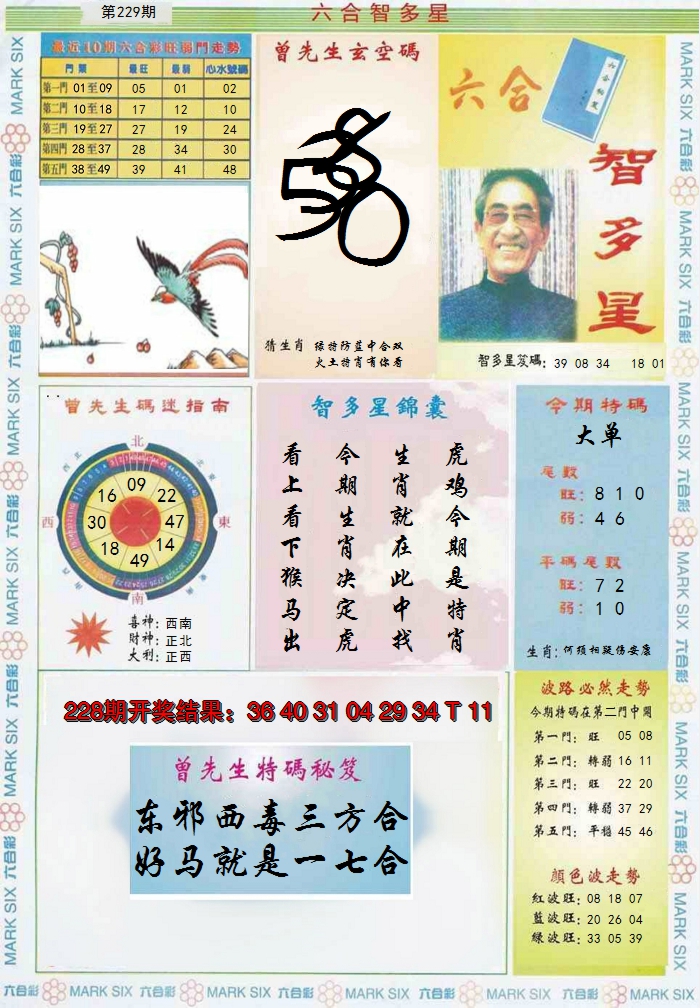 第229期
六合智多星
最近10期六合彩旺弱門走勢
門類 最旺 最弱 心水號碼
第一門 01至09 05 01 02
第二門 10至18 17 12 10
第三門 19至27 27 19 24
第四門 28至37 28 34 30
第五門 38至49 39 41 48
曾先生玄空碼
猜生肖 绿特防蓝中合双
火土特肖有你看
六合
智多星
智多星笈碼: 39 08 34 18 01
曾先生碼迷指南
北
09
16 22
西 30 47 東
18 14
49
南
喜神: 西南
財神: 正北
大利: 正西
智多星錦囊
虎鸡今期是特肖
生肖就在此中找
今期生肖决定虎
看上看下猴马出
今期特碼
大单
尾數
旺: 8 1 0
弱: 4 6
平碼尾數
旺: 7 2
弱: 1 0
生肖: 何须相疑伤安康
228期开奖结果: 36 40 31 04 29 34 T 11
曾先生特碼秘笈
东邪西毒三方合
好马就是一七合
波路必然走勢
今期特碼在第二門中開
第一門: 旺 05 08
第二門: 轉弱 16 11
第三門: 旺 22 20
第四門: 轉弱 37 29
第五門: 平穩 45 46
顔色波走勢
紅波旺: 08 18 07
藍波旺: 20 26 04
绿波旺: 33 05 39
六合彩 MARK SIX 六合彩 MARK SIX 六合彩 MARK SIX 六合彩 MARK SIX 六合彩 MARK SIX